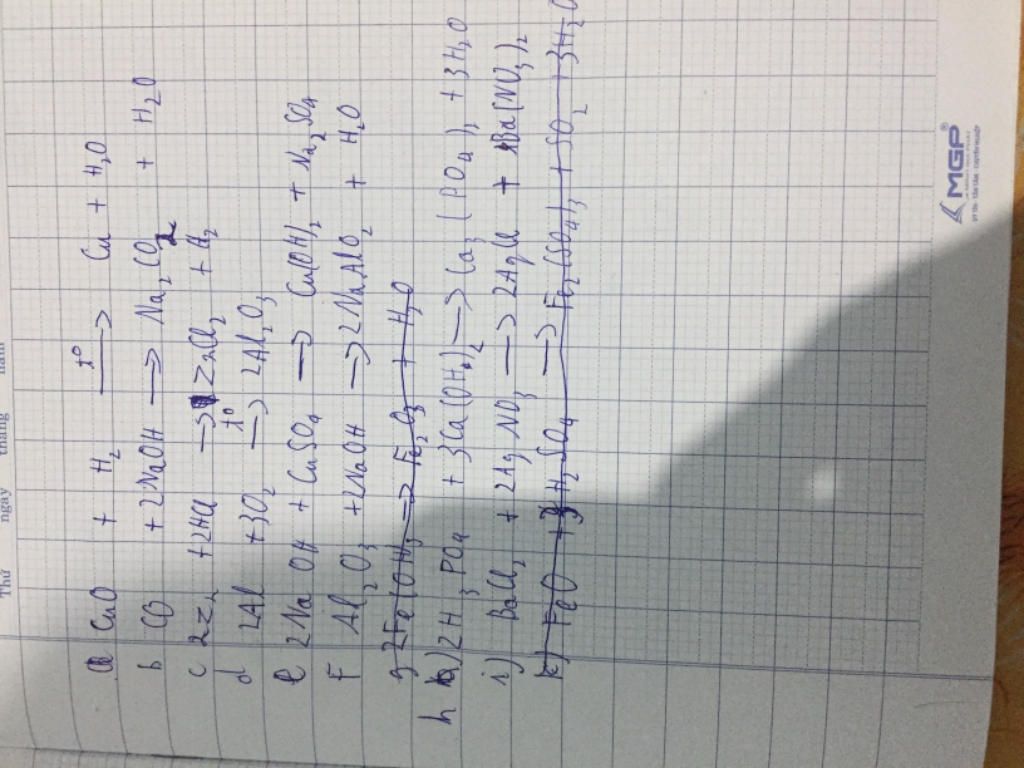 Thứ ngày tháng năm
a CuO + H2 t° → Cu + H2O
b CO + 2NaOH → Na2CO2 + H2O
c 2Zn + 2HCl → ZnCl2 + H2
d 2Al + 3O2 t° → 2Al2O3
e 2NaOH + CuSO4 → Cu(OH)2 + Na2SO4
F Al2O3 + 2NaOH → 2NaAlO2 + H2O
g 2Fe(OH)3 → Fe2O3 + H2O
h) 2H3PO4 + 3Ca(OH)2 → Ca3(PO4)2 + 3H2O
i) BaCl2 + 2AgNO3 → 2AgCl + Ba(NO3)2
k) FeO + 3H2SO4 → Fe2(SO4)3 + SO2 + 3H2O
MGP